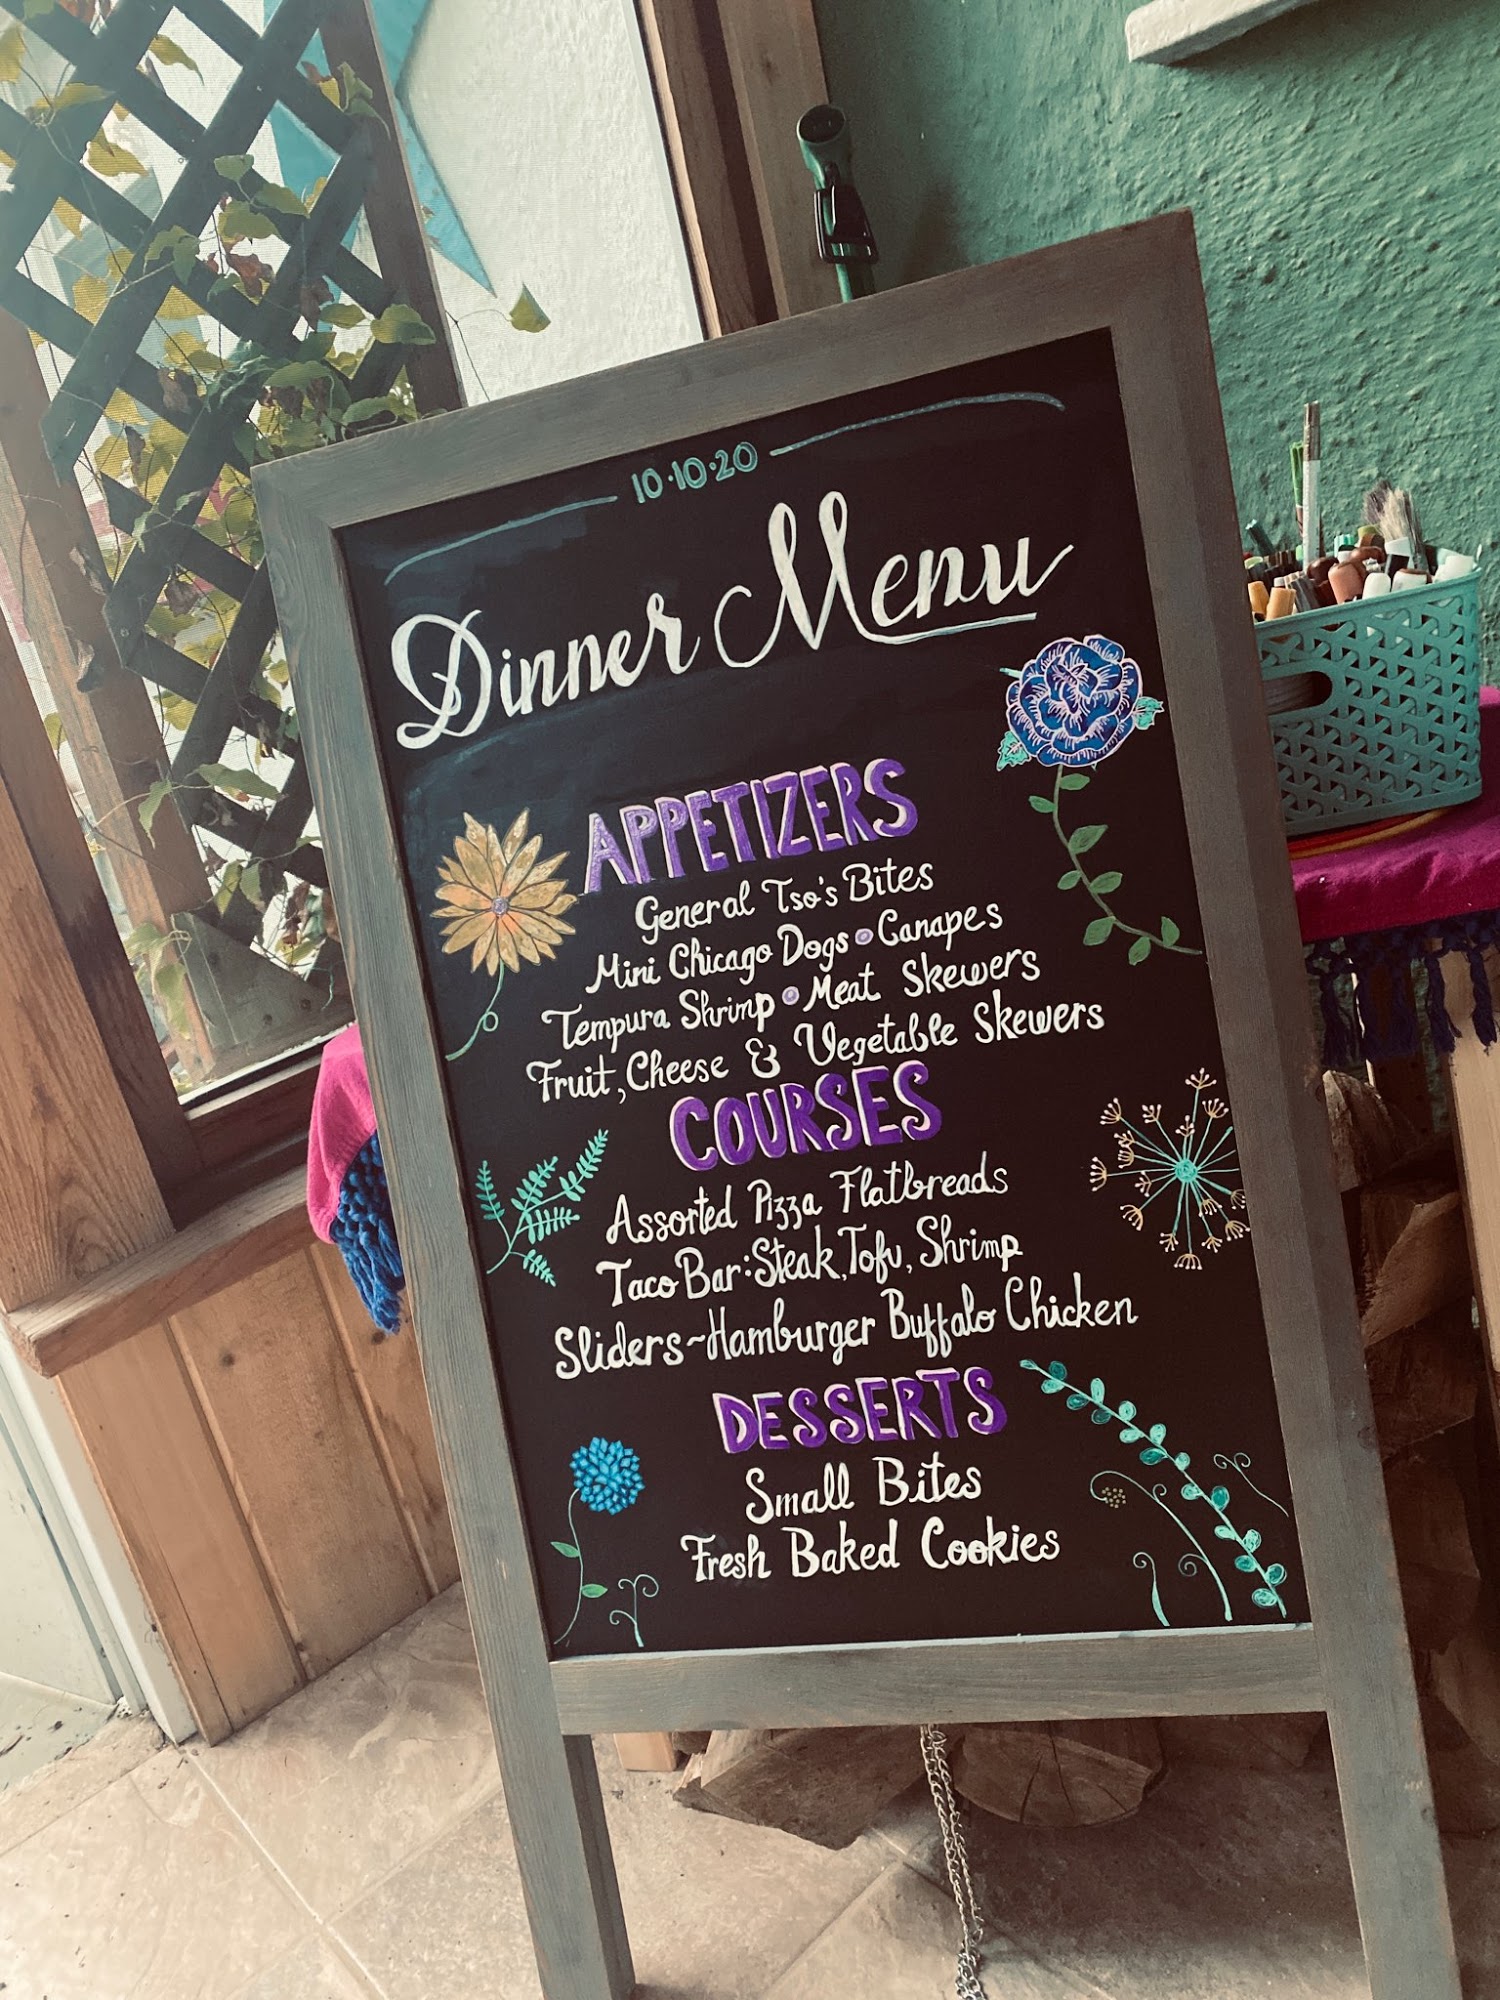 10·10·20
Dinner Menu
APPETIZERS
General Tso's Bites
Mini Chicago Dogs • Canapes
Tempura Shrimp • Meat Skewers
Fruit, Cheese & Vegetable Skewers
COURSES
Assorted Pizza Flatbreads
Taco Bar: Steak, Tofu, Shrimp
Sliders ~ Hamburger Buffalo Chicken
DESSERTS
Small Bites
Fresh Baked Cookies